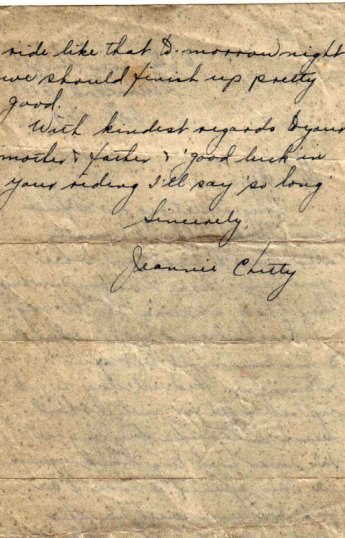 ride like that D. morrow night
we should finish up pretty
good.
With kindest regards D your
mother & father & good luck in
your riding I'll say so long
Sincerely,
Jeannie Chitty